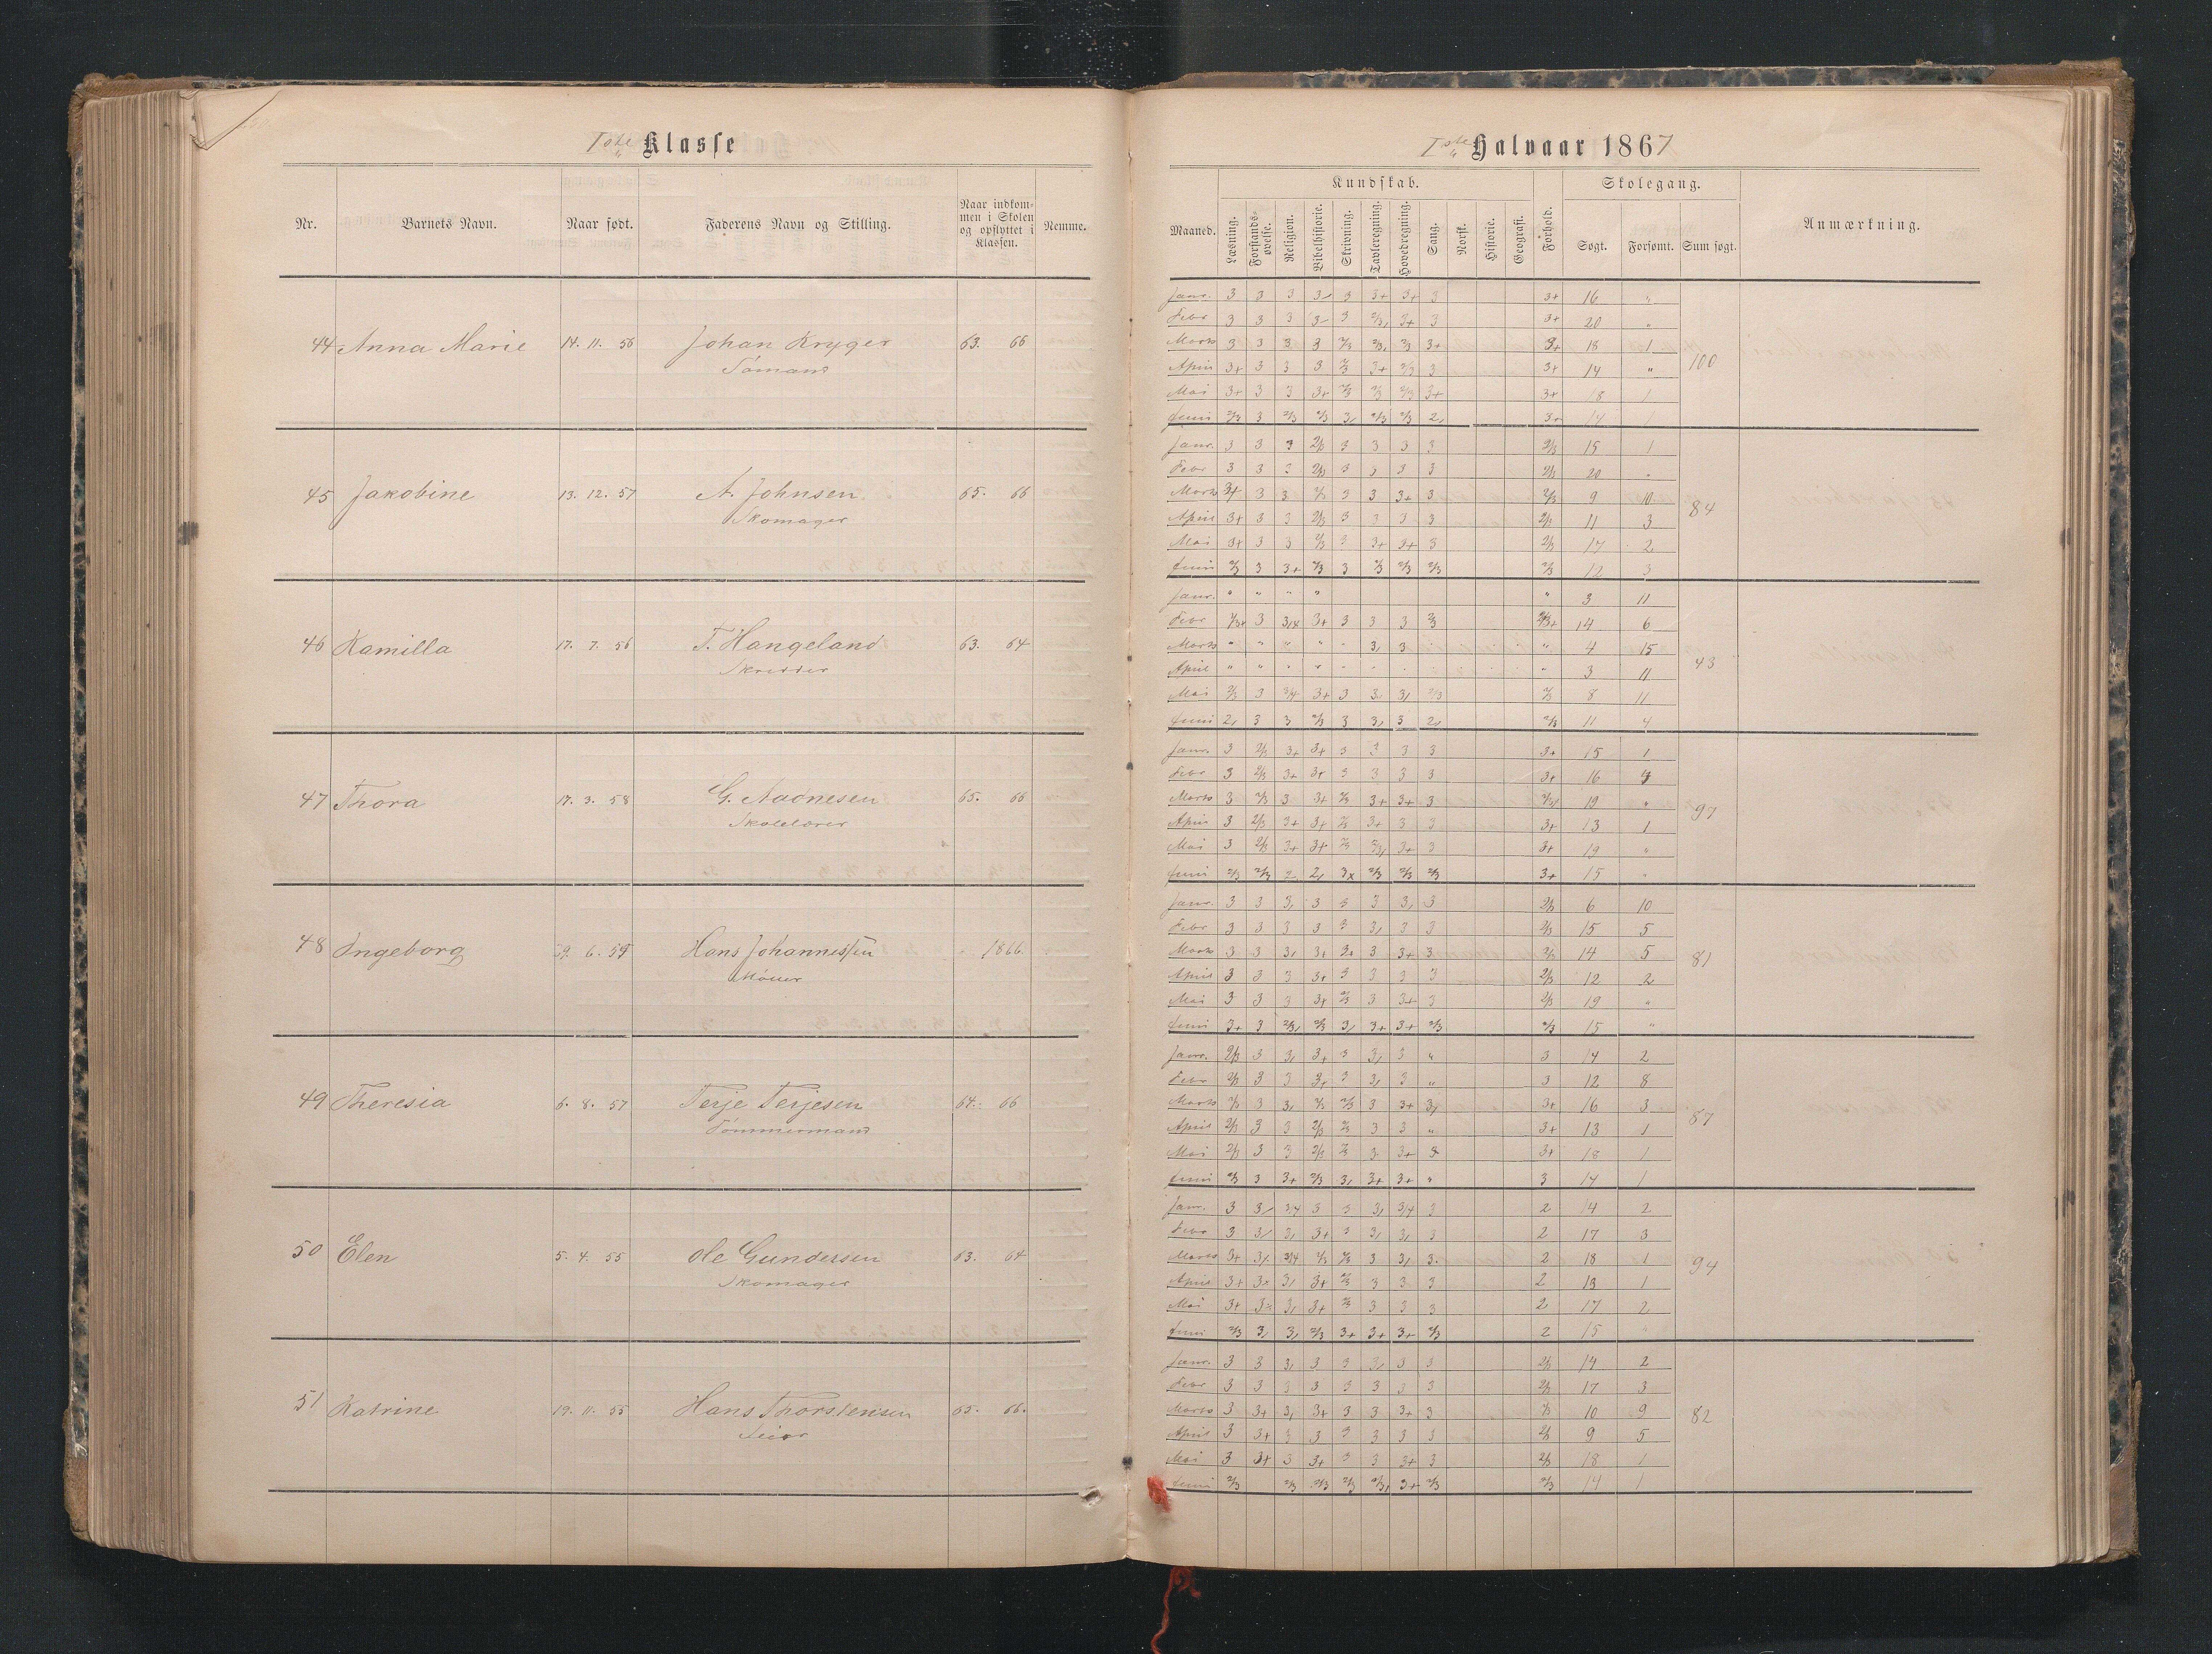 Iste Klasse
Nr. Barnets Navn. Naar født. Faderens Navn og Stilling. Naar indkommen i Skolen og opflyttet i Klassen. Nemme.
44 Anna Marie 14. 11. 56 Johan Kryger 63. 66
Tømand
45 Jakobine 13. 12. 57 A. Johnsen 65. 66
Skomager
46 Kamilla 17. 7. 56 T. Hangeland 63. 64
Skredder
47 Thora 17. 3. 58 G. Aadnesen 65. 66
Skolelærer
48 Ingeborg 29. 6. 59 Hans Johannessen 1866.
Møller
49 Theresia 6. 8. 57 Terje Terjesen 64. 66
Tømmermand
50 Elen 5. 4. 55 Ole Gundersen 63. 64
Skomager
51 Katrine 19. 11. 55 Hans Thorstensen 65. 66.
Iste Halvaar 1867
Kundskab. Skolegang.
Maaned. Læsning. Forstandsøvelse. Religion. Bibelhistorie. Skrivning. Tavleregning. Hovedregning. Sang. Norsk. Historie. Geografi. Forhold. Søgt. Forsømt. Sum søgt. Anmærkning.
Janr. 3 3 3 3/ 3 3+ 3+ 3 3+ 16 "
Febr 3 3 3 3/ 3 2/3, 3+ 3 3+ 20 "
Marts 3 3 3 3 2/3 2/3, 2/3 3+ 3+ 18 1
April 3+ 3 3 3 2/3 3+ 2/3 3 3+ 14 "
Mai 3+ 3 3 3+ 2/3 2/3 2/3 3+ 3+ 18 1
Juni 2/3 3 2/3 2/3 3, 2/3 2/3 2, 3+ 14 1
100
Janr. 3 3 3 2/3 3 3 3 3 2/3 15 1
Febr 3 3 3 2/3 3 3 3 3 2/3 20 "
Marts 3+ 3 3 2/3 3 3 3+ 3 2/3 9 10
April 3+ 3 3 2/3 3 3 3 3 2/3 11 3
Mai 3+ 3 3 2/3 3 3+ 3+ 3 2/3 17 2
Juni 2/3 3 3+ 2/3 3 2/3 2/3 2/3 2/3 12 3
84
Janr. " " " " " 3 11
Febr 3 3+ 3 3 3 14 6
Marts " " " " " 3, 3 " 4 15
April " " " " " 3 11
Mai 2/3 3 3/4 3+ 3 3, 3, 2/3 2/3 8 11
Juni 2, 3 3 2/3 3 3, 3 2, 2/3 11 4
43
Janr. 3 2/3 3+ 3+ 3 3 3 3 3+ 15 1
Febr 3 2/3 3+ 3+ 3 3 3 3 3+ 16 4
Marts 3 2/3 3 3+ 2/3 3+ 3+ 3 19 "
April 3 2/3 3+ 3+ 2/3 3+ 3 3 3+ 13 1
Mai 3 2/3 3+ 3+ 2/3 2/3, 3+ 3 3+ 19 "
Juni 2/3 2/3 2 2, 3x 2/3 2/3 2/3 3+ 15 "
97
Janr. 3 3 3, 3 3 3 3, 3 2/3 6 10
Febr 3 3 3 3 3 3, 3 3 2/3 15 5
Marts 3 3 3, 3+ 3+ 3 3+ 3 2/3 14 5
April 3 3 3 3+ 3 3 3 3 2/3 12 2
Mai 3 3 3 3+ 2/3 3 3+ 3 2/3 19 "
Juni 3+ 3 2/3, 2/3 3, 3+ 3+ 2/3 2/3 15 "
81
Janr. 2/3 3 3, 3+ 3 3, 3 " 3 14 2
Febr 2/3 3 3 3+ 3 3, 3 " 3 12 8
Marts 2/3 3 3, 2/3 2/3 3 3+ 3, 3+ 16 3
April 2/3 3 3 2/3 2/3 3 3 " 3+ 13 1
Mai 2/3 3 3 2/3 2/3 3 3+ 3 3+ 18 1
Juni 2/3 3 3+ 2/3 3, 3+ 3+ " 3 14 1
87
Janr. 3 3/ 3/4 3 3 3, 3/4 3 2 14 2
Febr 3 3/ 3, 3+ 3 3, 3, 3 2 17 3
Marts 3+ 3x 3/4 2/3 2/3 3 3, 3. 2 18 1
April 3+ 3x 3, 3+ 2/3 3 3 3 2 13 1
Mai 3+ 3x 3, 3+ 2/3 3 3 3 2 17 2
Juni 2/3 3, 3, 2/3 3+ 3+ 3+ 2/3 2 15 "
94
Janr. 3 3 3, 3 3 3, 3 3 2/3 14 2
Febr 3 3 3 3 3 3 3 3 2/3 17 3
Marts 3 3+ 3, 3+ 3 3 3+ 3 2/3 10 9
April 3 3+ 3 3 3 3 3 3 2/3 9 5
Mai 3 3+ 3 3+ 3 3 3+ 3 2/3 18 1
Juni 2/3 2/3 2/3 2/3 2/3, 3+ 2/3 2/3 14 1
82